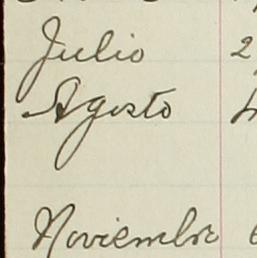 Julio 2
Agosto
Noviembre